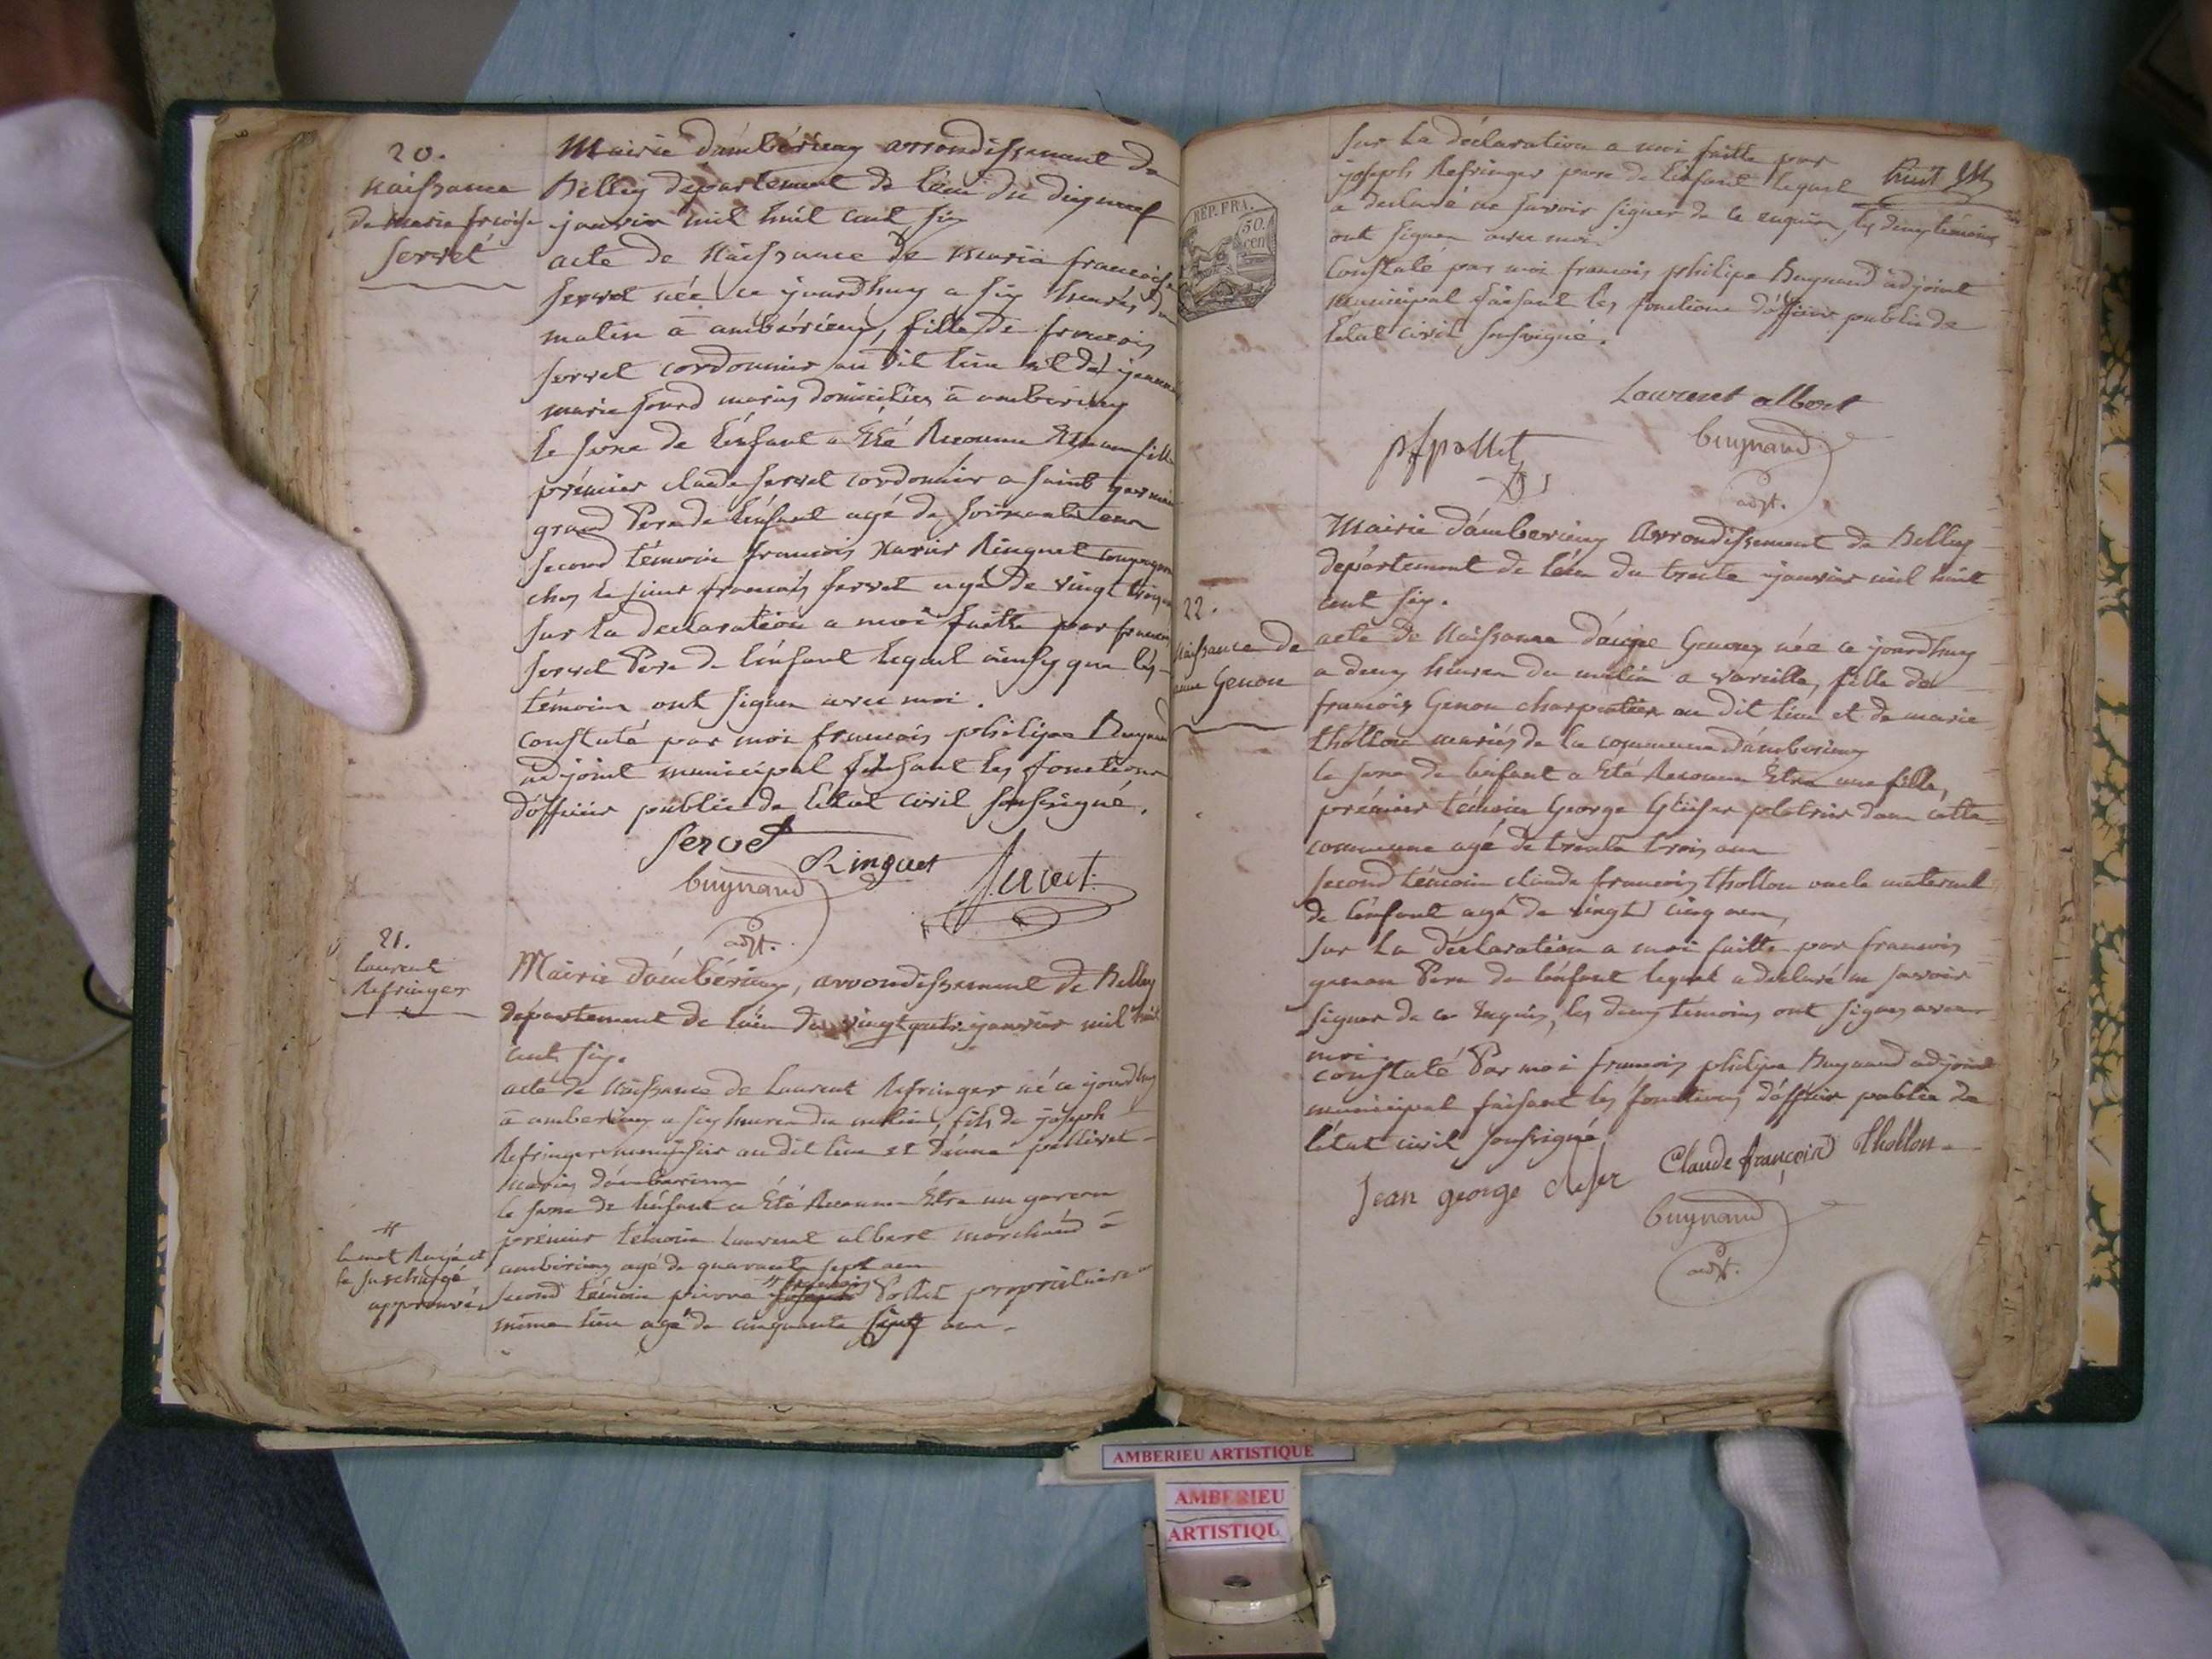 20.
Naissance
de Marie frcoise
Servet
Mairie d'ambérieux arrondissement de
Belley département de l'ain du dix neuf
janvier mil huit cent six
acte de Naissance de Marie francoise
Servet née ce jourdhuy a six heures du
matin à ambérieux, fille de francois
Servet cordonnier au dit lieu et de jeanne
marie mariés domiciliés à amberieux
le sexe de l'enfant a été Reconnu Etre une fille
prémier claude Servet cordonnier a saint germain
grand Pere de l'enfant agé de soixante ans
second témoin francois Xavier Ringuet compagnon
chez le sieur francois Servet agé de vingt
sur la déclaration a moi faitte par francois
Servet Pere de l'enfant lequel ainsy que les
témoins ont signer avec moi.
constaté par moi francois philipe Buynand
adjoint municipal faisant les fonctions
d'officier public de l'état civil soussigné.
Servet
Ringuet
Servet
buynand
adjt.
21.
laurent
Refringer
Mairie d'ambérieux, arrondissement de Belley
département de l'ain du vingt janvier mil huit
cent six.
acte de Naissance de Laurent Refringer né ce jourdhuy
à amberieux a six heures du matin, fils de joseph
Refringer menuisier au dit lieu et d'anne
mariés d'amberieux
le sexe de l'enfant a été Reconnu Etre un garcon
prémier témoin laurent albert marchand à
amberieux agé de quarante sept ans
second témoin pierre francois Pollet propriétaire
même lieu agé de cinquante sept ans.
#
le mot Rayé et
la surchargé
approuvés
sur la déclaration a moi faitte par
joseph Refringer pere de l'enfant lequel
a declaré ne savoir signer de ce enquis, les deux témoins
ont signer avec moi
huit
REP. FRA.
50.
cen
Constaté par moi francois philipe Buynand adjoint
municipal faisant les fonctions d'officier public de
l'état civil soussigné.
Laurent albert
pfpollet
buynand
adjt.
22.
Naissance de
anne Genou
Mairie d'amberieux Arrondissement de Belley
département de l'ain du trente janvier mil huit
cent six.
acte de Naissance d'anne Genou née ce jourdhuy
a deux heures du matin a vareille, fille de
francois Genou charpentier au dit lieu et de marie
thollon mariés de la commune d'amberieux
le sexe de l'enfant a été Reconnu Etre une fille,
prémier témoin George platrier dans cette
commune agé de trente trois ans
second témoin claude francois thollon oncle maternel
de l'enfant agé de vingt cinq ans,
sur la déclaration a moi faitte par francois
genou Pere de l'enfant lequel a declaré ne savoir
signer de ce enquis, les deux témoins ont signer avec
moi.
constaté Par moi francois philipe Buynand adjoint
municipal faisant les fonctions d'officier public de
l'état civil soussigné.
Jean george
Claude françois thollon
buynand
adjt.
AMBERIEU ARTISTIQUE
AMBERIEU
ARTISTIQU